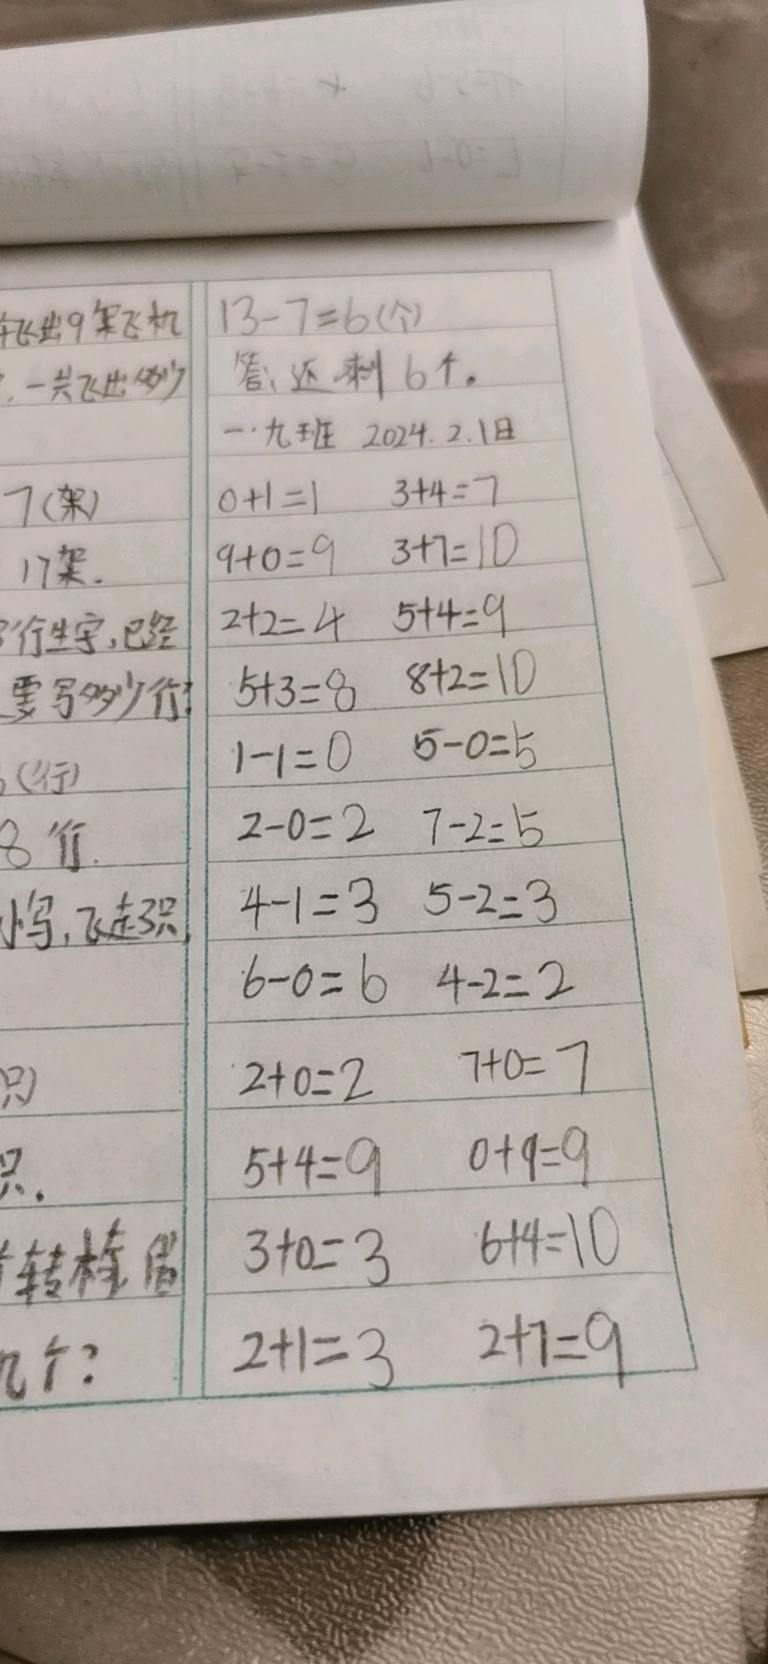 飞出9架飞机
一共飞出多少
7(架)
17架.
行生字,已经
要写多少行?
(行)
8行.
飞走3只,
只)
只.
转椅
几个?
13-7=6(个)
答:还剩6个.
一.九班 2024.2.1日
0+1=1 3+4=7
9+0=9 3+7=10
2+2=4 5+4=9
5+3=8 8+2=10
1-1=0 5-0=5
2-0=2 7-2=5
4-1=3 5-2=3
6-0=6 4-2=2
2+0=2 7+0=7
5+4=9 0+9=9
3+0=3 6+4=10
2+1=3 2+7=9